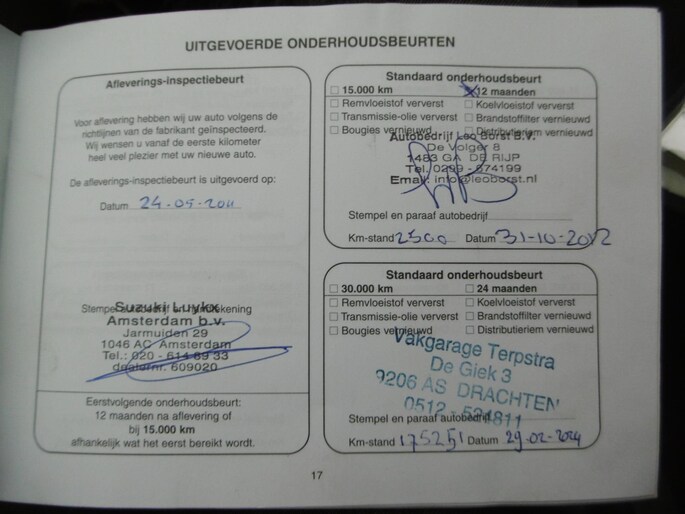 UITGEVOERDE ONDERHOUDSBEURTEN
Afleverings-inspectiebeurt
Voor aflevering hebben wij uw auto volgens de
richtlijnen van de fabrikant geïnspecteerd.
Wij wensen u vanaf de eerste kilometer
heel veel plezier met uw nieuwe auto.
De afleverings-inspectiebeurt is uitgevoerd op:
Datum 24-05-2011
Suzuki Luykx
Amsterdam b.v.
Jarmuiden 29
1046 AC Amsterdam
Tel.: 020 - 614 89 33
dealernr. 609020
Eerstvolgende onderhoudsbeurt:
12 maanden na aflevering of
bij 15.000 km
afhankelijk wat het eerst bereikt wordt.
Standaard onderhoudsbeurt
15.000 km 12 maanden
Remvloeistof ververst Koelvloeistof ververst
Transmissie-olie ververst Brandstoffilter vernieuwd
Bougies vernieuwd Distributieriem vernieuwd
Autobedrijf Leo Borst B.V.
De Volger 8
1483 GA DE RIJP
Tel. 0299 - 674199
Email: info@leoborst.nl
Stempel en paraaf autobedrijf
Km-stand 2500 Datum 31-10-2012
Standaard onderhoudsbeurt
30.000 km 24 maanden
Remvloeistof ververst Koelvloeistof ververst
Transmissie-olie ververst Brandstoffilter vernieuwd
Bougies vernieuwd Distributieriem vernieuwd
Vakgarage Terpstra
De Giek 3
9206 AS DRACHTEN
0512 - 524811
Stempel en paraaf autobedrijf
Km-stand 175251 Datum 29-02-2024
17